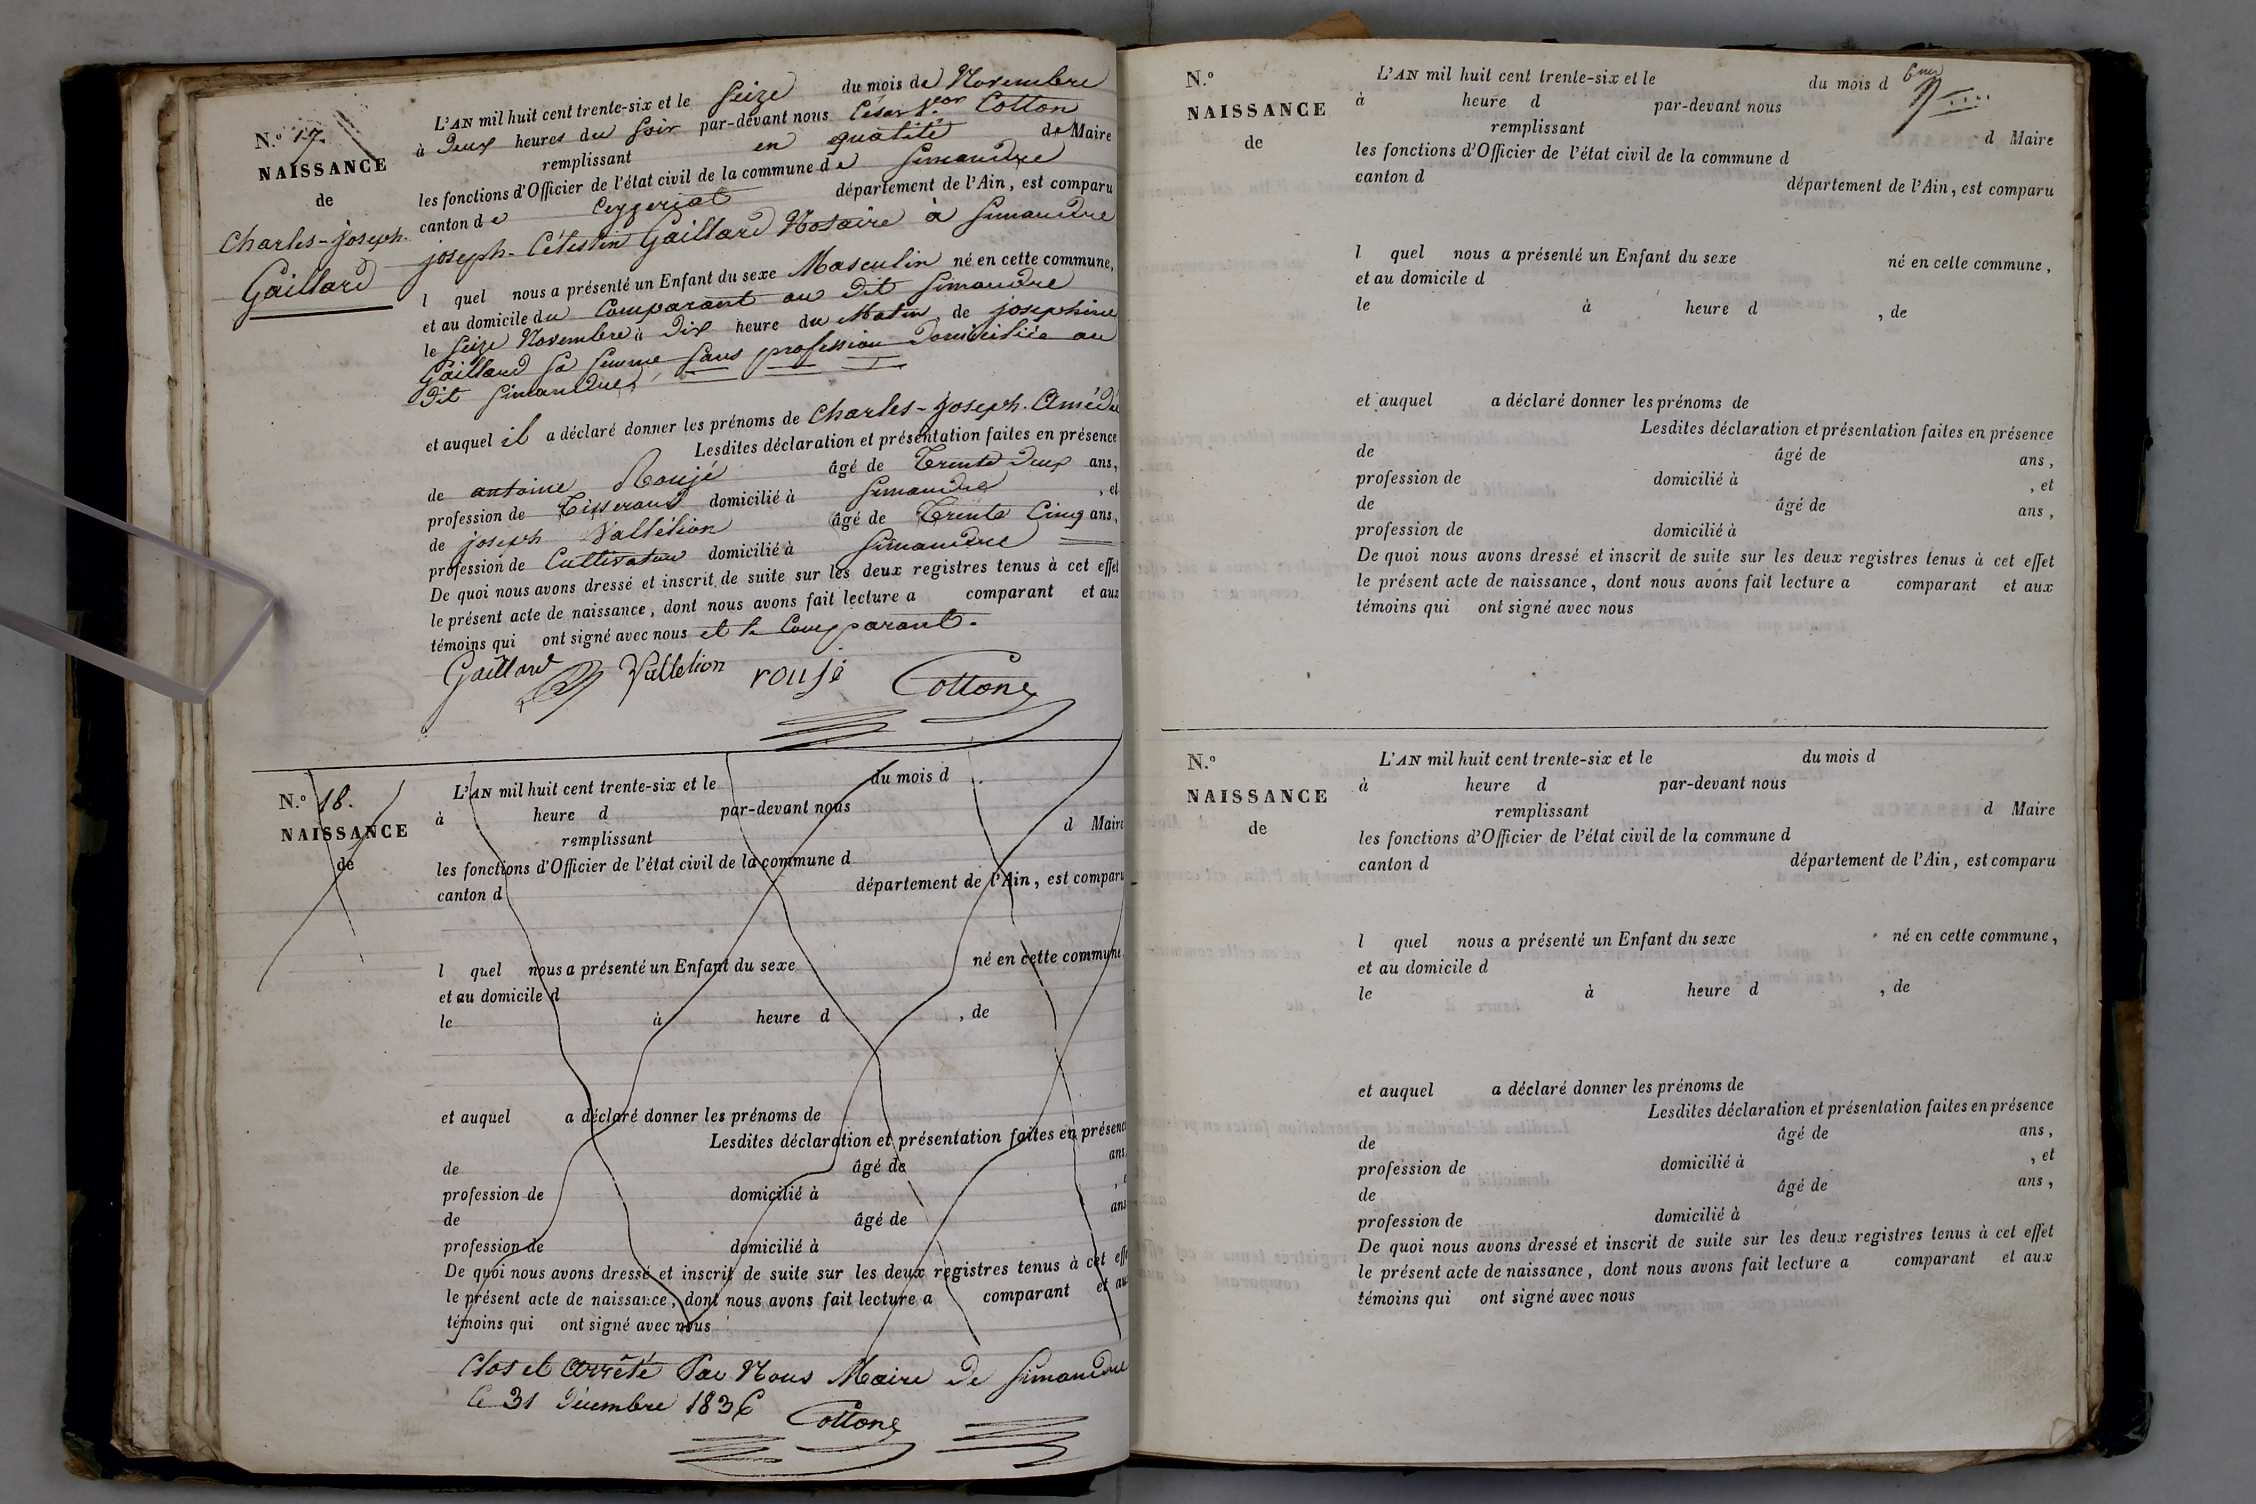 N.º 17.
NAISSANCE
de
Charles-joseph.
Gaillard
L'AN mil huit cent trente-six et le Seize du mois de Novembre
à Deux heures du Soir par-devant nous César Cotton
remplissant en qualité de Maire
les fonctions d'Officier de l'état civil de la commune de Simandre
canton de Ceyzeriat département de l'Ain, est comparu
joseph-Célestin Gaillard Notaire à Simandre
l quel nous a présenté un Enfant du sexe Masculin né en cette commune,
et au domicile du Comparant au dit Simandre
le Seize Novembre à Dix heure du Matin, de josephine
Gaillard Sa femme Sans profession Domiciliée au
dit Simandre,
et auquel il a déclaré donner les prénoms de Charles-joseph. Amédé
Lesdites déclaration et présentation faites en présence
de antoine Roujé âgé de Trente Deux ans,
profession de Tisserand domicilié à Simandre , et
de joseph Vallélion âgé de Trente Cinq ans,
profession de Cultivateur domicilié à Simandre
De quoi nous avons dressé et inscrit de suite sur les deux registres tenus à cet effet
le présent acte de naissance, dont nous avons fait lecture a comparant et aux
témoins qui ont signé avec nous et le Comparant.
Gaillard Vallelion roujé Cottone
N.º 18.
NAISSANCE
de
L'AN mil huit cent trente-six et le du mois d
à heure d par-devant nous
remplissant d Maire
les fonctions d'Officier de l'état civil de la commune d
canton d département de l'Ain, est comparu
l quel nous a présenté un Enfant du sexe né en cette commune,
et au domicile d
le à heure d , de
et auquel a déclaré donner les prénoms de
Lesdites déclaration et présentation faites en présence
de âgé de ans
profession de domicilié à , e
de âgé de ans
profession de domicilié à
De quoi nous avons dressé et inscrit de suite sur les deux registres tenus à cet effe
le présent acte de naissance, dont nous avons fait lecture a comparant et au
témoins qui ont signé avec nous
Clos et Arrêté Par Nous Maire de Simandre
le 31 Décembre 1836 Cottone
N.º
NAISSANCE
de
L'AN mil huit cent trente-six et le du mois d
à heure d par-devant nous
remplissant d Maire
les fonctions d'Officier de l'état civil de la commune d
canton d département de l'Ain, est comparu
l quel nous a présenté un Enfant du sexe né en cette commune,
et au domicile d
le à heure d , de
et auquel a déclaré donner les prénoms de
Lesdites déclaration et présentation faites en présence
de âgé de ans,
profession de domicilié à , et
de âgé de ans,
profession de domicilié à
De quoi nous avons dressé et inscrit de suite sur les deux registres tenus à cet effet
le présent acte de naissance, dont nous avons fait lecture a comparant et aux
témoins qui ont signé avec nous
N.º
NAISSANCE
de
L'AN mil huit cent trente-six et le du mois d
à heure d par-devant nous
remplissant d Maire
les fonctions d'Officier de l'état civil de la commune d
canton d département de l'Ain, est comparu
l quel nous a présenté un Enfant du sexe né en cette commune,
et au domicile d
le à heure d , de
et auquel a déclaré donner les prénoms de
Lesdites déclaration et présentation faites en présence
de âgé de ans,
profession de domicilié à , et
de âgé de ans,
profession de domicilié à
De quoi nous avons dressé et inscrit de suite sur les deux registres tenus à cet effet
le présent acte de naissance, dont nous avons fait lecture a comparant et aux
témoins qui ont signé avec nous